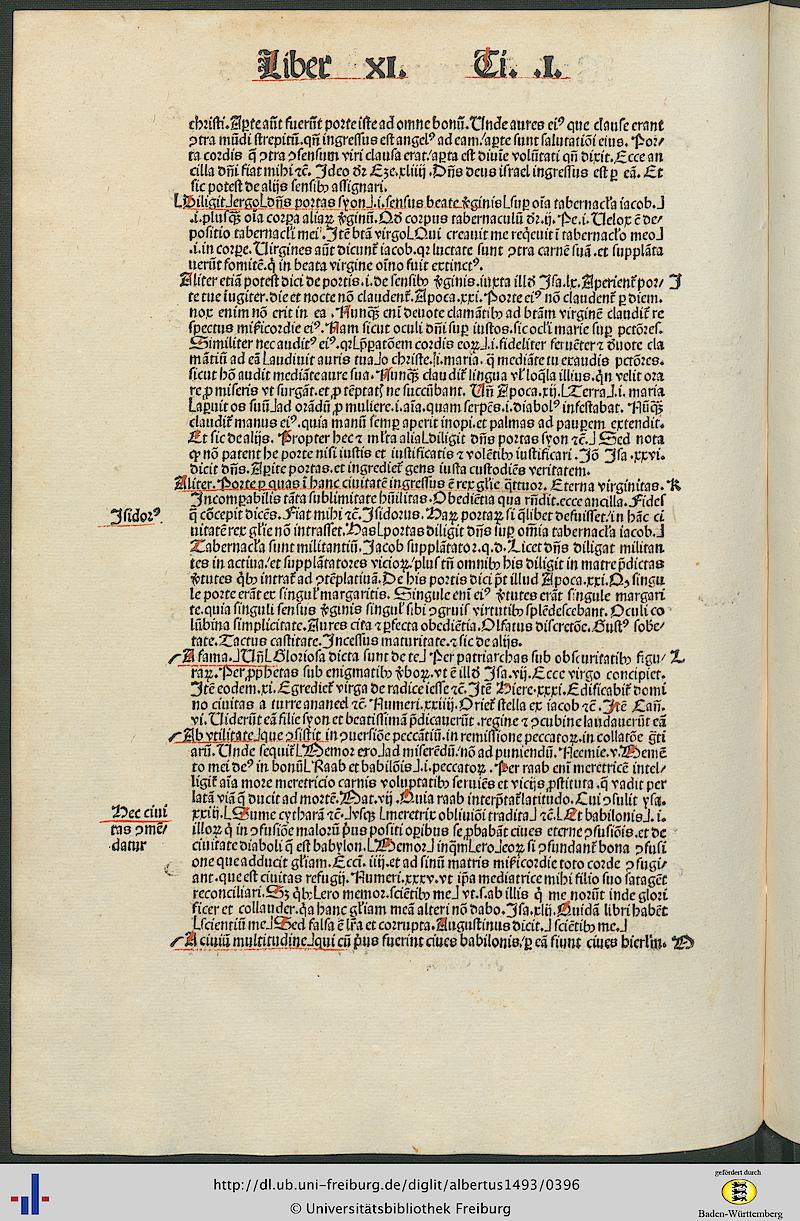 Liber XI. Ti. .I.
christi. Aꝑte aūt fuerūt porte iste ad omne bonū. Unde aures eiꝰ que clause erant
ↄtra mūdi strepitū. qn̄ ingressus est angelꝰ ad eam / aꝑte sunt salutatiōi eius. Por⸗
ta cordis q̄ ↄtra ↄsensum viri clausa erat / aꝑta est diuīe volūtati qn̄ dixit. Ecce an
cilla dn̄i fiat mihi ⁊c̄. Ideo d̄r Eze. xliiij. Dn̄s deus israel ingressus est ꝑ eā. Et
sic potest de alijs sensibꝰ assignari.
Diligit ergo dn̄s portas syon .i. sensus beate v̄ginis suꝑ oīa tabernacl̄a iacob.
.i. plusq̄ꝫ oīa corꝑa aliaꝝ v̄ginū. Qd̄ corpus tabernaculū dr̄. ij. Pe. i. Uelox ē de⸗
positio tabernacl̄i mei. Itē btā virgo Qui creauit me reqēuit ī tabernacl̄o meo
.i. in corꝑe. Uirgines aūt dicunt̄ iacob. qr luctate sunt ↄtra carnē suā. et supplāta
uerūt fomitē. q̄ in beata virgine oīno fuit extinctꝰ.
Aliter etiā potest dici de portis .i. de sensibꝰ v̄ginis. iuxta illd̄ Isa. lx. Aperient̄ por⸗ I
te tue iugiter. die et nocte nō claudent̄. Apoca. xxi. Porte eiꝰ nō claudent̄ ꝑ diem.
nox enim nō erit in ea. Nunqꝫ em̄ deuote clamātibꝰ ad btām virginē claudit̄ re
spectus mīcordie eiꝰ. Nam sicut oculi dn̄i suꝑ iustos. sic ocl̄i marie suꝑ pctōres.
Similiter nec auditꝰ eiꝰ. qr p̄paratōem cordis eoꝝ .i. fideliter feruēter ⁊ d̄uote cla
mātiū ad eā audiuit auris tua o christe. i. maria. q̄ mediāte tu exaudis pctōres.
sicut hō audit mediāte aure sua. Nunqꝫ claudit̄ lingua vl̄ loq̄la illius. qn̄ velit ora
re ꝓ miseris vt surgāt. et ꝓ tēptatꝭ ne succūbant. Uñ Apoca. xij. Terra .i. maria
aꝑuit os suū ad orādū ꝓ muliere .i. aīa. quam serpēs .i. diabolꝰ infestabat. Nūqꝫ
claudit̄ manus eiꝰ. quia manū semꝑ aperit inopi. et palmas ad pauꝑem extendit.
Et sic de alijs. Propter hec ⁊ ml̄ta alia diligit dn̄s portas syon ⁊c̄. Sed nota
ꝙ nō patent he porte nisi iustis et iustificatis ⁊ volētibꝰ iustificari. Iō Isa. xxvi.
dicit dn̄s. Aꝑite portas. et ingrediet̄ gens iusta custodiēs veritatem.
Aliter. Porte ꝑ quas ī hanc ciuitatē ingressus ē rex glīe q̄ttuor. Eterna virginitas. K
Incomꝑabilis tāta sublimitate hūilitas. Obediētia qua rn̄dit. ecce ancilla. Fides
q̄ cōcepit dicēs. Fiat mihi ⁊c̄. Isidorus. Haꝝ portaꝝ si q̄libet defuisset / in hāc ci
Isidorꝰ.
uitatē rex glīe nō intrasset. Has portas diligit dn̄s suꝑ omīa tabernacl̄a iacob.
Tabernacl̄a sunt militantiū. Iacob supplātator. q.d. Licet dn̄s diligat militan
tes in actiua / et supplātatores vicioꝝ / plus tn̄ omnibꝰ his diligit in matre p̄dictas
v̄tutes q̄bꝰ intrat̄ ad ↄtēplatiuā. De his portis dici pt̄ illud Apoca. xxi. Qꝫ singu
le porte erāt ex singul̄ margaritis. Singule em̄ eiꝰ v̄tutes erāt singule margari
te. quia singuli sensus v̄ginis singul̄ sibi ↄgruis virtutibꝰ splēdescebant. Oculi co
lūbina simplicitate. Aures cita ⁊ ꝑfecta obediētia. Olfatus discretōe. Gustꝰ sobe⸗
tate. Tactus castitate. Incessus maturitate. ⁊ sic de alijs.
A fama. Uñ Gloriosa dicta sunt de te Per patriarchas sub obscuritatibꝰ figu⸗ L
raꝝ. Per ꝓphetas sub enigmatibꝰ v̄boꝝ. vt ē illd̄ Isa. vij. Ecce virgo concipiet.
Itē eodem. xi. Egrediet̄ virga de radice iesse ⁊c̄. Itē Hiere. xxxi. Edificabit̄ domi
no ciuitas a turre ananeel ⁊c̄. Numeri. xxiiij. Oriet̄ stella ex iacob ⁊c̄. Itē Cañ.
vi. Uiderūt eā filie syon et beatissimā p̄dicauerūt. regine ⁊ ↄcubine laudauerūt eā
Ab vtilitate que ↄsistit in ↄuersiōe peccātiū. in remissione peccatoꝝ. in collatōe gr̄ti
arū. Unde sequit̄ Memor ero ad miserēdū / nō ad puniendū. Neemie. v. Memē
to mei deꝰ in bonū Raab et babilōis .i. peccatoꝝ. Per raab em̄ meretricē intel⸗
ligit̄ aīa more meretricio carnis voluptatibꝰ seruiēs et vicijs ꝓstituta. q̄ vadit per
latā viā q̄ ducit ad mortē. Mat. vij. Quia raab interp̄tat̄ latitudo. Cui ↄsulit ysa.
xxiij. Sume cytharā ⁊c̄. vsqꝫ meretrix obliuiōi tradita ⁊c̄. Et babilonis .i.
Hec ciui
tas ↄmē⸗
datur
illoꝝ q̄ in ↄfusiōe malorū p̄us positi oꝑibus se ꝓbabāt ciues eterne ↄfusiōis. et de
ciuitate diaboli q̄ est babylon. Memor inq̄m ero eoꝝ si ↄfundant̄ bona ↄfusi
one que adducit gl̄iam. Ecci. iiij. et ad sinū matris mīcordie toto corde ↄfugi⸗
ant. que est ciuitas refugij. Numeri. xxxv. vt ip̄a mediatrice mihi filio suo satagēt
reconciliari. Sꝫ q̄bꝰ ero memor. sciētibꝰ me vt .s. ab illis q̄ me norūt inde glori
ficer et collauder. q̄a hanc gl̄iam meā alteri nō dabo. Isa. xlij. Quidā libri habēt
scientiū me Sed falsa ē lr̄a et corrupta. Augustinus dicit. sciētibꝰ me.
A ciuiū multitudine qui cū p̄us fuerint ciues babilonis / ꝑ eā fiunt ciues hierl̄m. M
gefördert durch
http://dl.ub.uni-freiburg.de/diglit/albertus1493/0396
© Universitätsbibliothek Freiburg
Baden-Württemberg